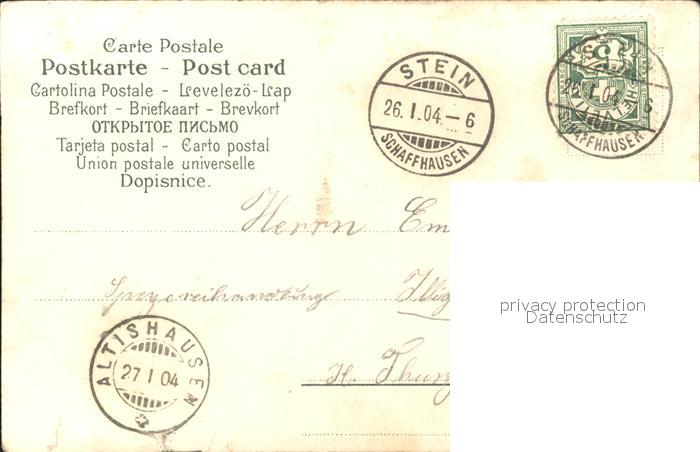 Carte Postale
Postkarte - Post card
Cartolina Postale - Levelezö-Lap
Brefkort - Briefkaart - Brevkort
ОТКРЫТОЕ ПИСЬМО
Tarjeta postal - Carto postal
Union postale universelle
Dopisnice.
STEIN
26. I. 04. - 6
SCHAFFHAUSEN
STEIN
26. I. 04. - 6
SCHAFFHAUSEN
5
HELVETIA
Herrn Em
Spezereihandlung
privacy protection
Datenschutz
ALTISHAUSEN
27 I 04
Kt. Thurg